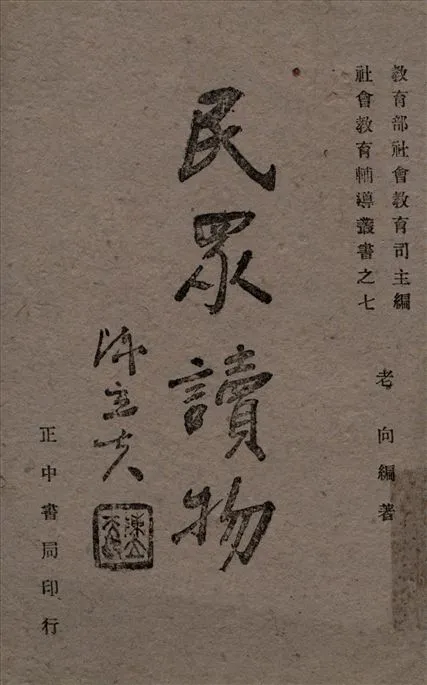 教育部社會教育司主編
社會教育輔導叢書之七
老向編著
民眾讀物
陳立夫
正中書局印行